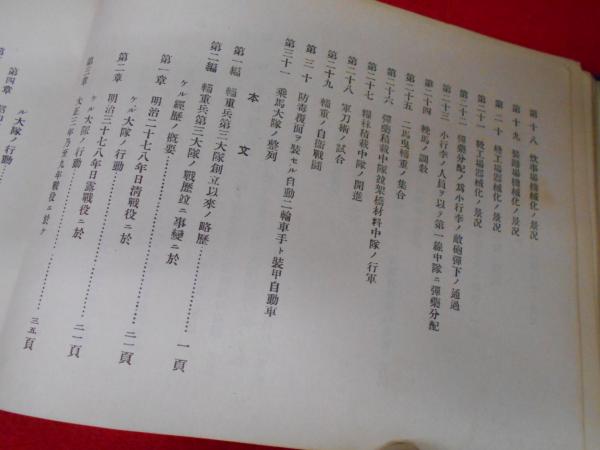 第十八 炊事場機械化ノ景況
第十九 裝蹄場機械化ノ景況
第二十 縫工場器械化ノ景況
第二十一 鞍工場器械化ノ景況
第二十二 彈藥分配ノ爲小行李ノ敵砲彈下ノ通過
第二十三 小行李ノ人員ヲ以テ第一線中隊ニ彈藥分配
第二十四 輓馬ノ調敎
第二十五 二馬曳輜重ノ集合
第二十六 彈藥積載中隊竝架橋材料中隊ノ行軍
第二十七 糧秣積載中隊ノ開進
第二十八 軍刀術ノ試合
第二十九 輜重ノ自衞戰鬪
第三十 防毒覆面ヲ裝セル自動二輪車手ト裝甲自動車
第三十一 乘馬大隊ノ整列
本文
第一編 輜重兵第三大隊創立以來ノ略歷
第二編 輜重兵第三大隊ノ戰歷竝ニ事變ニ於
ケル經歷ノ概要 一頁
第一章 明治二十七八年日淸戰役ニ於
ケル大隊ノ行動 二一頁
第二章 明治三十七八年日露戰役ニ於
ケル大隊ノ行動 二一頁
第三章 大正三年乃至
年戰役ニ於ケ
ル大隊ノ行動 三五頁
第四章